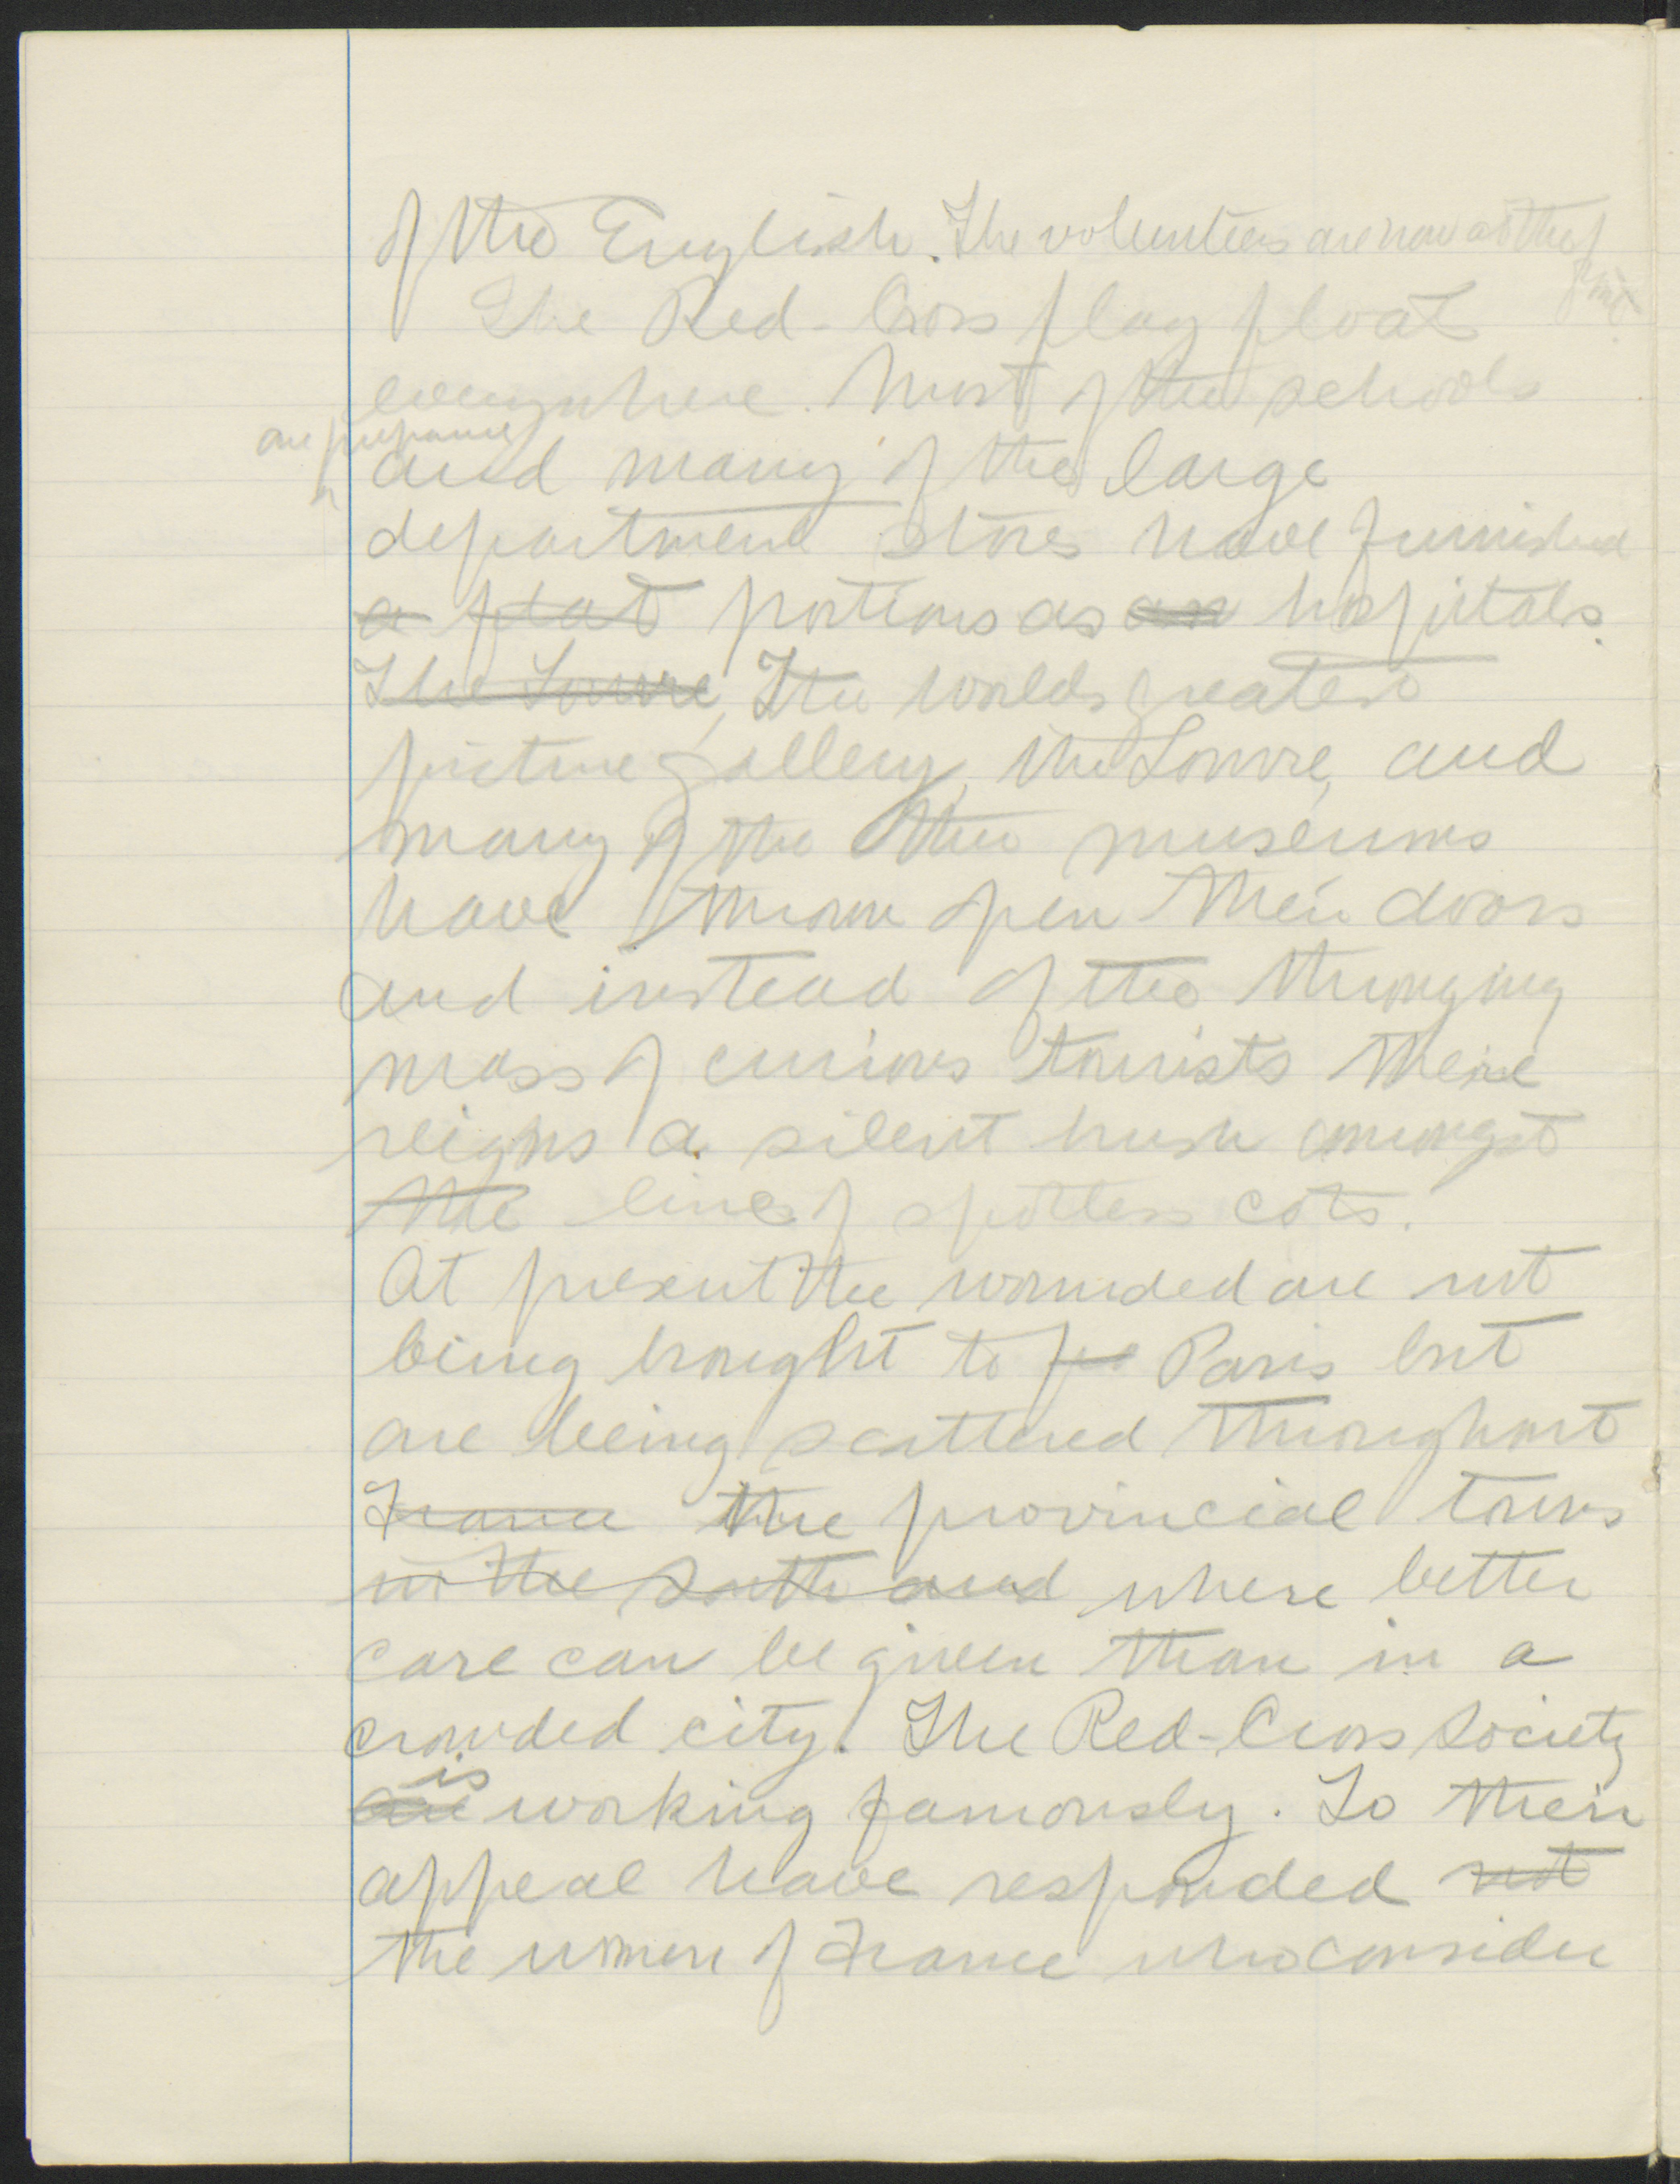 of the English. The volunteers are now at the front.
The Red-Cross flag floats
everywhere. Most of the schools
are prepared
and many of the large
department stores have furnished
a flat portions as an hospitals.
The Louvre, The worlds greatest
picture gallery, the Louvre, and
many of the other museums
have thrown open their doors
and instead of the thronging
mass of curious tourists there
reigns a silent hush amongst
the lines of spotless cots.
At present the wounded are not
being brought to Paris but
are being scattered throughout
France the provincial towns
in the South and where better
care can be given than in a
crowded city. The Red-Cross Society
is
are working famously. To their
appeal have responded not
the women of France who consider